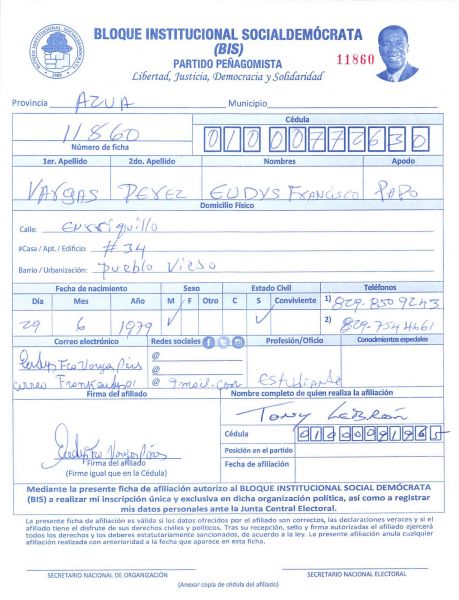 BLOQUE INSTITUCIONAL SOCIALDEMÓCRATA
(BIS)
PARTIDO PEÑAGOMISTA
11860
Libertad, Justicia, Democracia y Solidaridad
Provincia AZUA Municipio
Cédula
11860
01000772630
Número de ficha
1er. Apellido 2do. Apellido Nombres Apodo
VARGAS PEREZ EUDYS FRANCISCO PAPO
Domicilio Físico
Calle: enrriquillo
#Casa / Apt. / Edificio: #34
Barrio / Urbanización: Pueblo Viejo
Fecha de nacimiento Sexo Estado Civil Teléfonos
Día Mes Año M F Otro C S Conviviente
1) 829-850 9243
29 6 1979
2) 829-754 4661
Correo electrónico Redes sociales Profesión/Oficio Conocimientos especiales
@
@
@ gmail.com estudiante
Firma del afiliado Nombre completo de quien realiza la afiliación
Tony LeBrón
Cédula
Posición en el partido
Firma del afiliado
(Firme igual que en la Cédula)
Fecha de afiliación
Mediante la presente ficha de afiliación autorizo al BLOQUE INSTITUCIONAL SOCIAL DEMÓCRATA
(BIS) a realizar mi inscripción única y exclusiva en dicha organización política, así como a registrar
mis datos personales ante la Junta Central Electoral.
La presente ficha de afiliación es válida si los datos ofrecidos por el afiliado son correctos, las declaraciones veraces y si el
afiliado tiene el disfrute de sus derechos civiles y políticos. Tras su recepción, sello y firma autorizadas el afiliado ejercerá
todos los derechos y los deberes estatutariamente sancionados, de acuerdo a la ley. La presente afiliación anula cualquier
afiliación realizada con anterioridad a la fecha que aparece en esta ficha.
SECRETARIO NACIONAL DE ORGANIZACIÓN SECRETARIO NACIONAL ELECTORAL
(Anexar copia de cédula del afiliado)